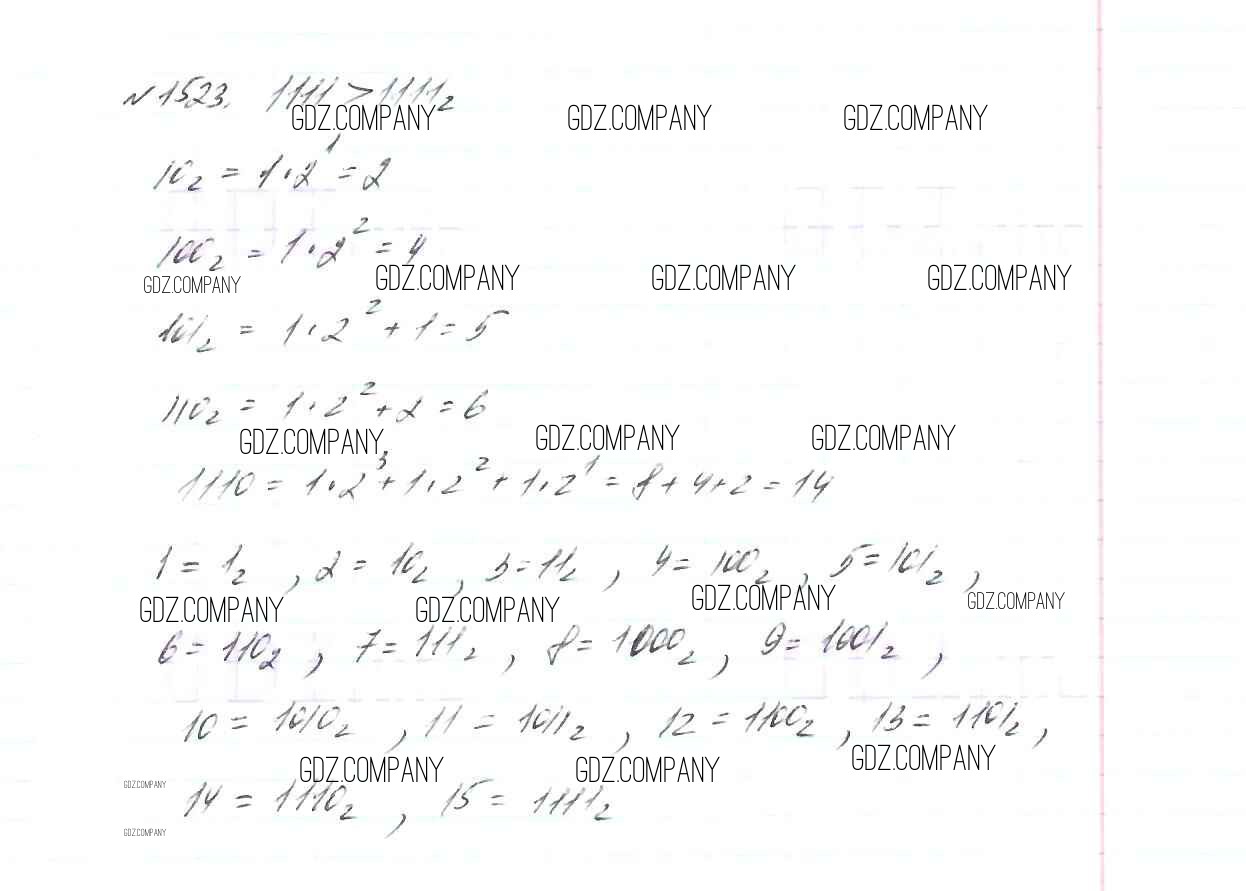 №1523. 1111 > 1111₂
GDZ.COMPANY GDZ.COMPANY GDZ.COMPANY
10₂ = 1·2¹ = 2
100₂ = 1·2² = 4
GDZ.COMPANY GDZ.COMPANY GDZ.COMPANY GDZ.COMPANY
101₂ = 1·2² + 1 = 5
110₂ = 1·2² + 2 = 6
GDZ.COMPANY GDZ.COMPANY GDZ.COMPANY
1110 = 1·2³ + 1·2² + 1·2¹ = 8 + 4 + 2 = 14
1 = 1₂ , 2 = 10₂ , 3 = 11₂ , 4 = 100₂ , 5 = 101₂ ,
GDZ.COMPANY GDZ.COMPANY GDZ.COMPANY GDZ.COMPANY
6 = 110₂ , 7 = 111₂ , 8 = 1000₂ , 9 = 1001₂ ,
10 = 1010₂ , 11 = 1011₂ , 12 = 1100₂ , 13 = 1101₂ ,
GDZ.COMPANY GDZ.COMPANY GDZ.COMPANY GDZ.COMPANY
14 = 1110₂ , 15 = 1111₂
GDZ.COMPANY